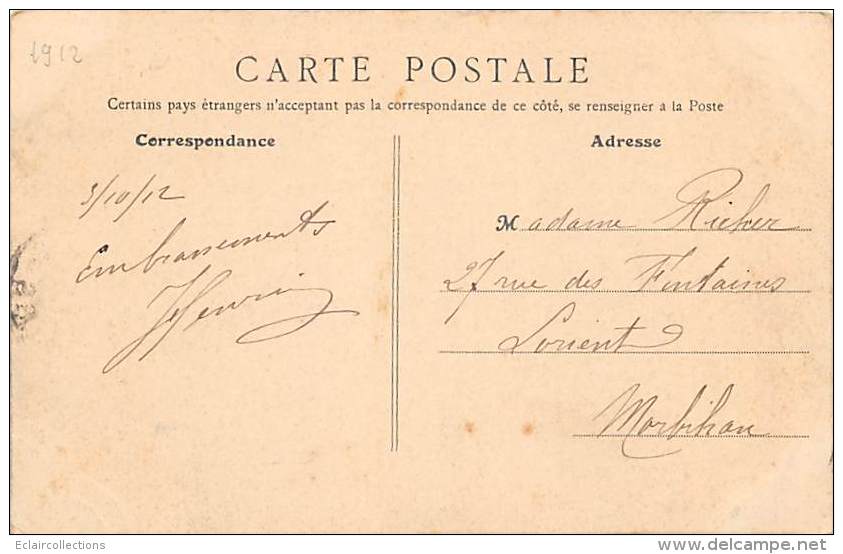 1912
CARTE POSTALE
Certains pays étrangers n'acceptant pas la correspondance de ce côté, se renseigner a la Poste
Correspondance
3/10/12
Embrassements
Henri
Adresse
Madame Richer
27 rue des Fontaines
Lorient
Morbihan
Eclaircollections
www.delcampe.net